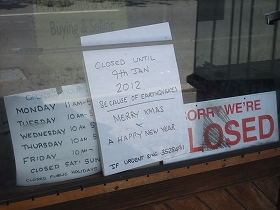 Buying & Selling
CLOSED UNTIL
9th JAN
2012
BECAUSE OF EARTHQUAKES
MERRY XMAS
&
A HAPPY NEW YEAR
IF URGENT RING
MONDAY 11AM-5
TUESDAY 10AM-
WEDNESDAY 10AM-
THURSDAY 10AM-
FRIDAY 10AM-
CLOSED SAT: SUN
CLOSED PUBLIC HOLIDAYS
SORRY WE'RE
CLOSED